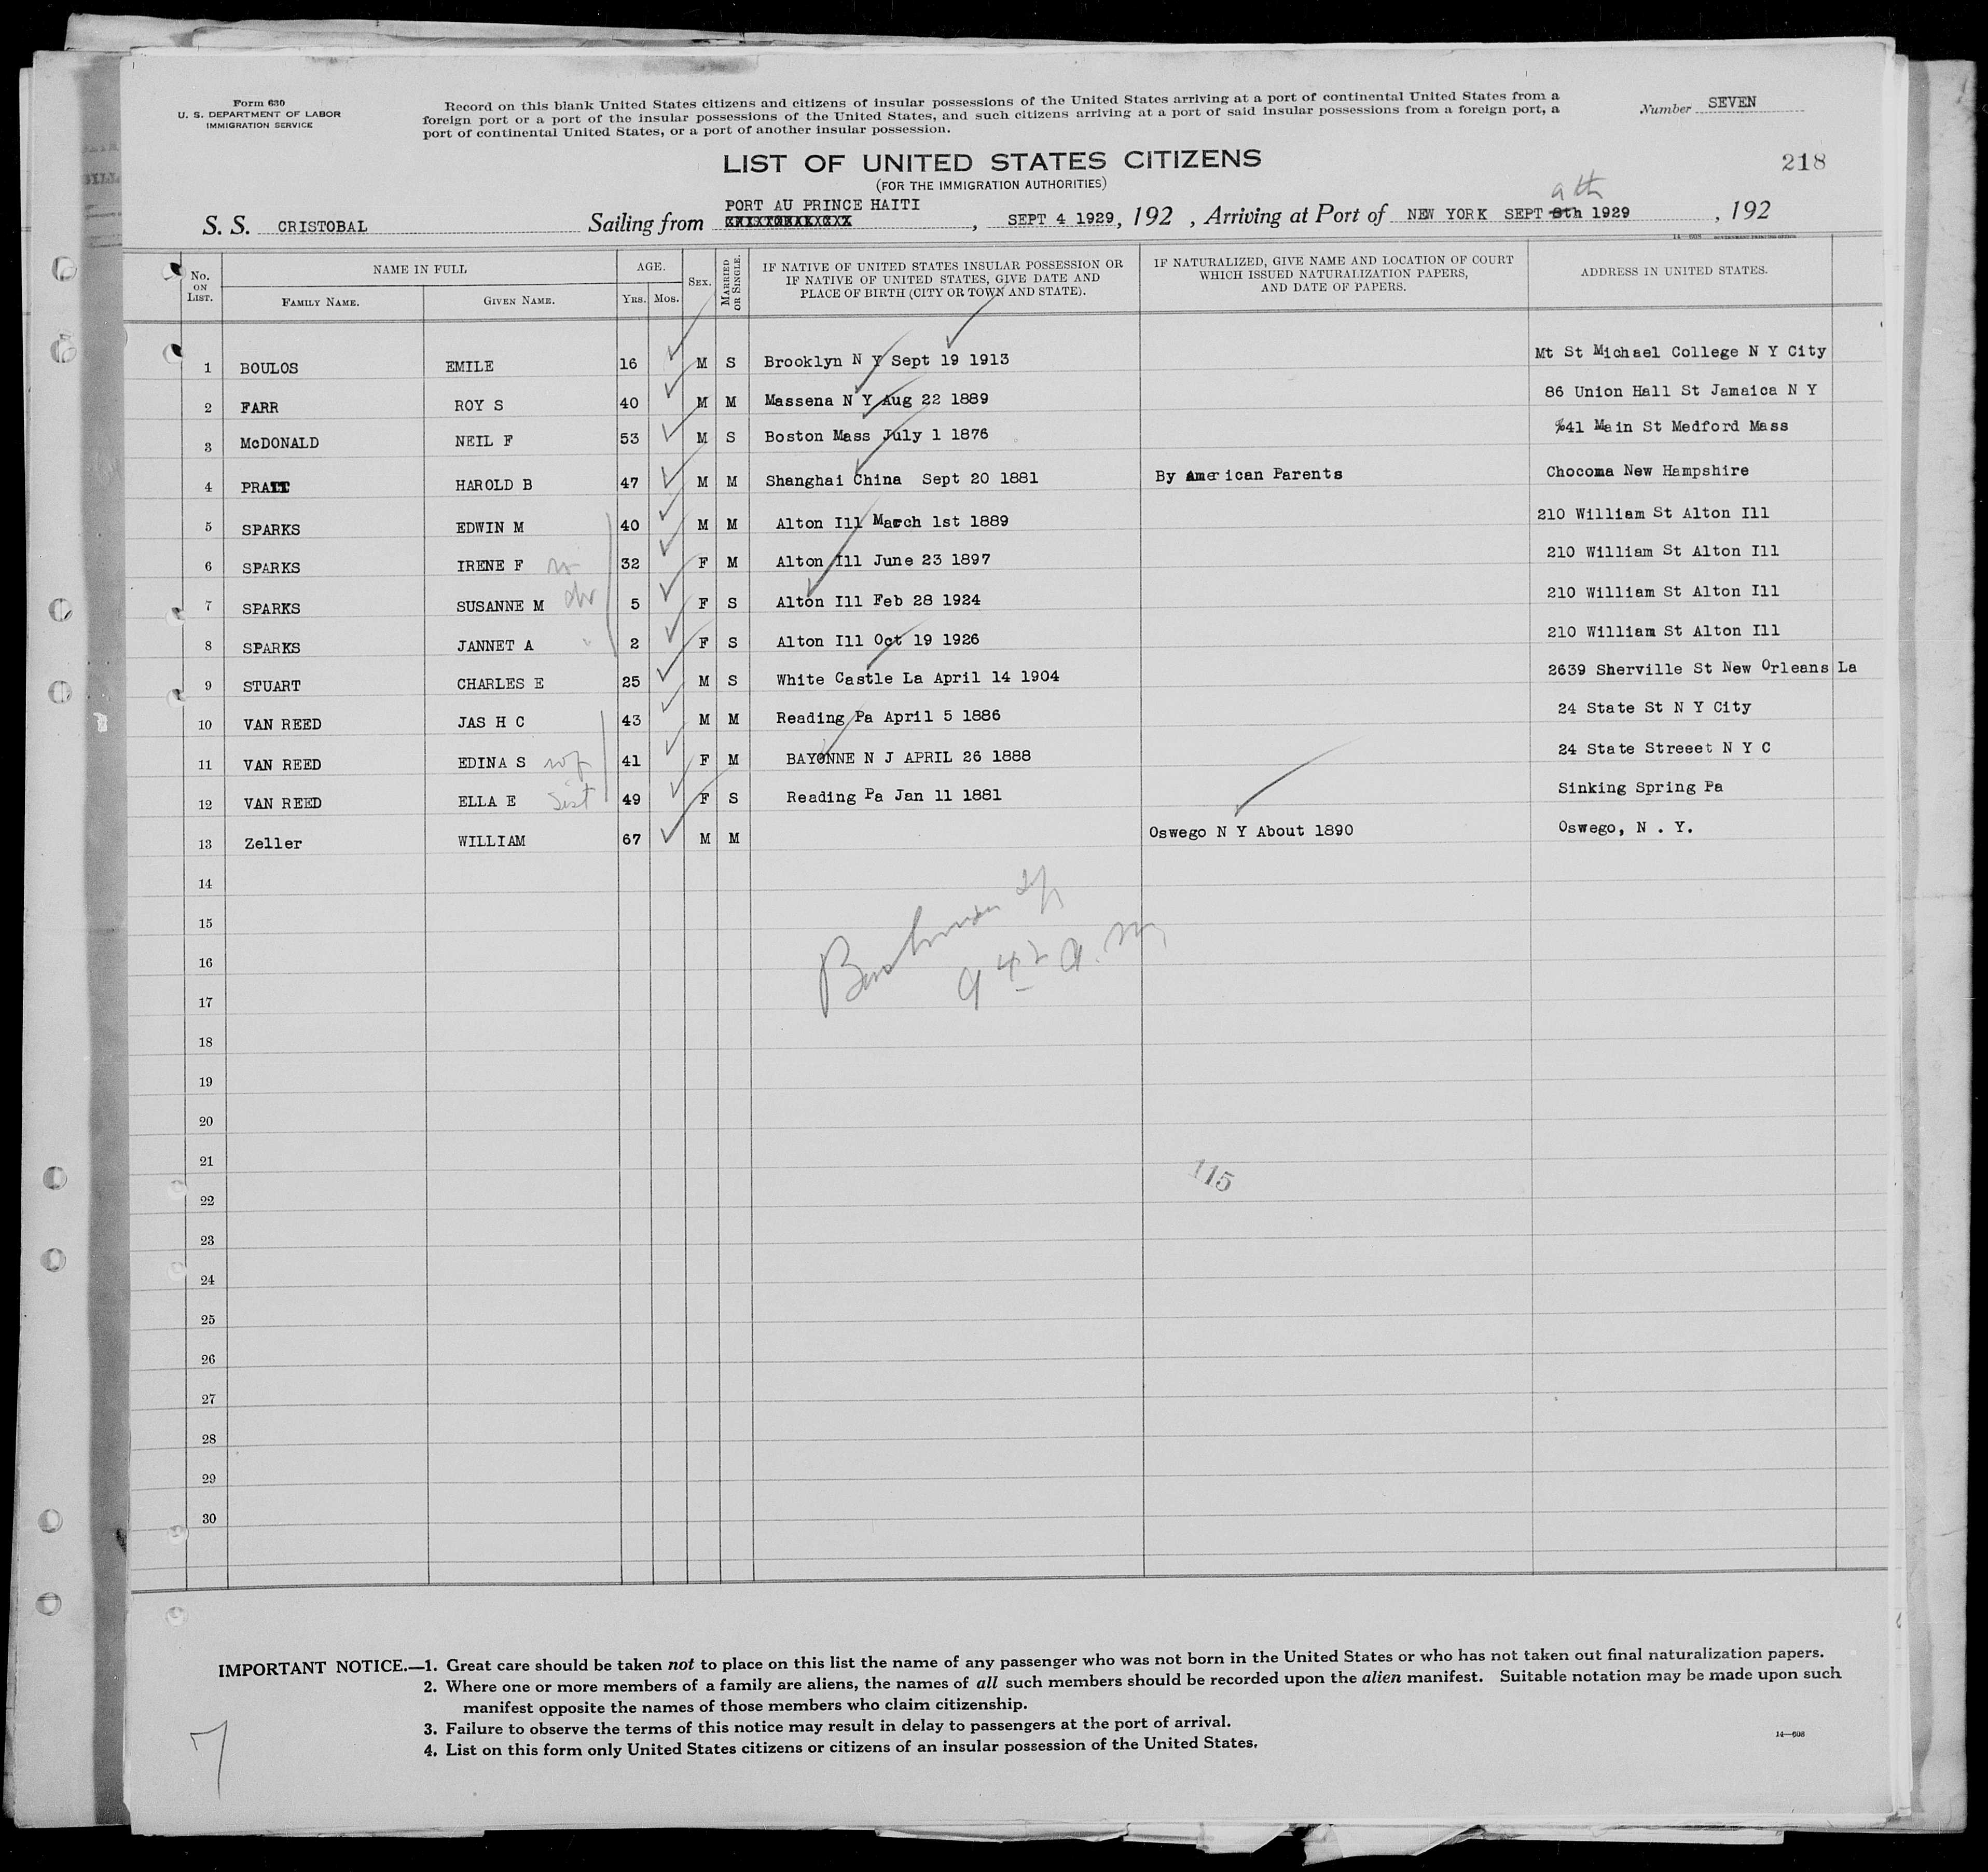 Form 630
U. S. DEPARTMENT OF LABOR
IMMIGRATION SERVICE
Record on this blank United States citizens and citizens of insular possessions of the United States arriving at a port of continental United States from a
foreign port or a port of the insular possessions of the United States, and such citizens arriving at a port of said insular possessions from a foreign port, a
port of continental United States, or a port of another insular possession.
Number SEVEN
LIST OF UNITED STATES CITIZENS
218
(FOR THE IMMIGRATION AUTHORITIES)
9th
PORT AU PRINCE HAITI
S. S. CRISTOBAL Sailing from , SEPT 4 1929, 192 , Arriving at Port of NEW YORK SEPT 8th 1929 , 192
No. ON LIST. NAME IN FULL FAMILY NAME. GIVEN NAME. AGE. YRS. MOS. SEX. MARRIED OR SINGLE. IF NATIVE OF UNITED STATES INSULAR POSSESSION OR IF NATIVE OF UNITED STATES, GIVE DATE AND PLACE OF BIRTH (CITY OR TOWN AND STATE). IF NATURALIZED, GIVE NAME AND LOCATION OF COURT WHICH ISSUED NATURALIZATION PAPERS, AND DATE OF PAPERS. ADDRESS IN UNITED STATES.
1 BOULOS EMILE 16 M S Brooklyn N Y Sept 19 1913 Mt St Michael College N Y City
2 FARR ROY S 40 M M Massena N Y Aug 22 1889 86 Union Hall St Jamaica N Y
3 McDONALD NEIL F 53 M S Boston Mass July 1 1876 %41 Main St Medford Mass
4 PRATT HAROLD B 47 M M Shanghai China Sept 20 1881 By American Parents Chocoma New Hampshire
5 SPARKS EDWIN M 40 M M Alton Ill March 1st 1889 210 William St Alton Ill
6 SPARKS IRENE F 32 F M Alton Ill June 23 1897 210 William St Alton Ill
7 SPARKS SUSANNE M 5 F S Alton Ill Feb 28 1924 210 William St Alton Ill
8 SPARKS JANNET A 2 F S Alton Ill Oct 19 1926 210 William St Alton Ill
9 STUART CHARLES E 25 M S White Castle La April 14 1904 2639 Sherville St New Orleans La
10 VAN REED JAS H C 43 M M Reading Pa April 5 1886 24 State St N Y City
11 VAN REED EDINA S wf 41 F M BAYONNE N J APRIL 26 1888 24 State Streeet N Y C
12 VAN REED ELLA E Sist 49 F S Reading Pa Jan 11 1881 Sinking Spring Pa
13 Zeller WILLIAM 67 M M Oswego N Y About 1890 Oswego, N . Y.
14
15
16
9 42 A. M.
17
18
19
20
21
115
22
23
24
25
26
27
28
29
30
IMPORTANT NOTICE.—1. Great care should be taken not to place on this list the name of any passenger who was not born in the United States or who has not taken out final naturalization papers.
2. Where one or more members of a family are aliens, the names of all such members should be recorded upon the alien manifest. Suitable notation may be made upon such
manifest opposite the names of those members who claim citizenship.
3. Failure to observe the terms of this notice may result in delay to passengers at the port of arrival.
4. List on this form only United States citizens or citizens of an insular possession of the United States.
14—608
7